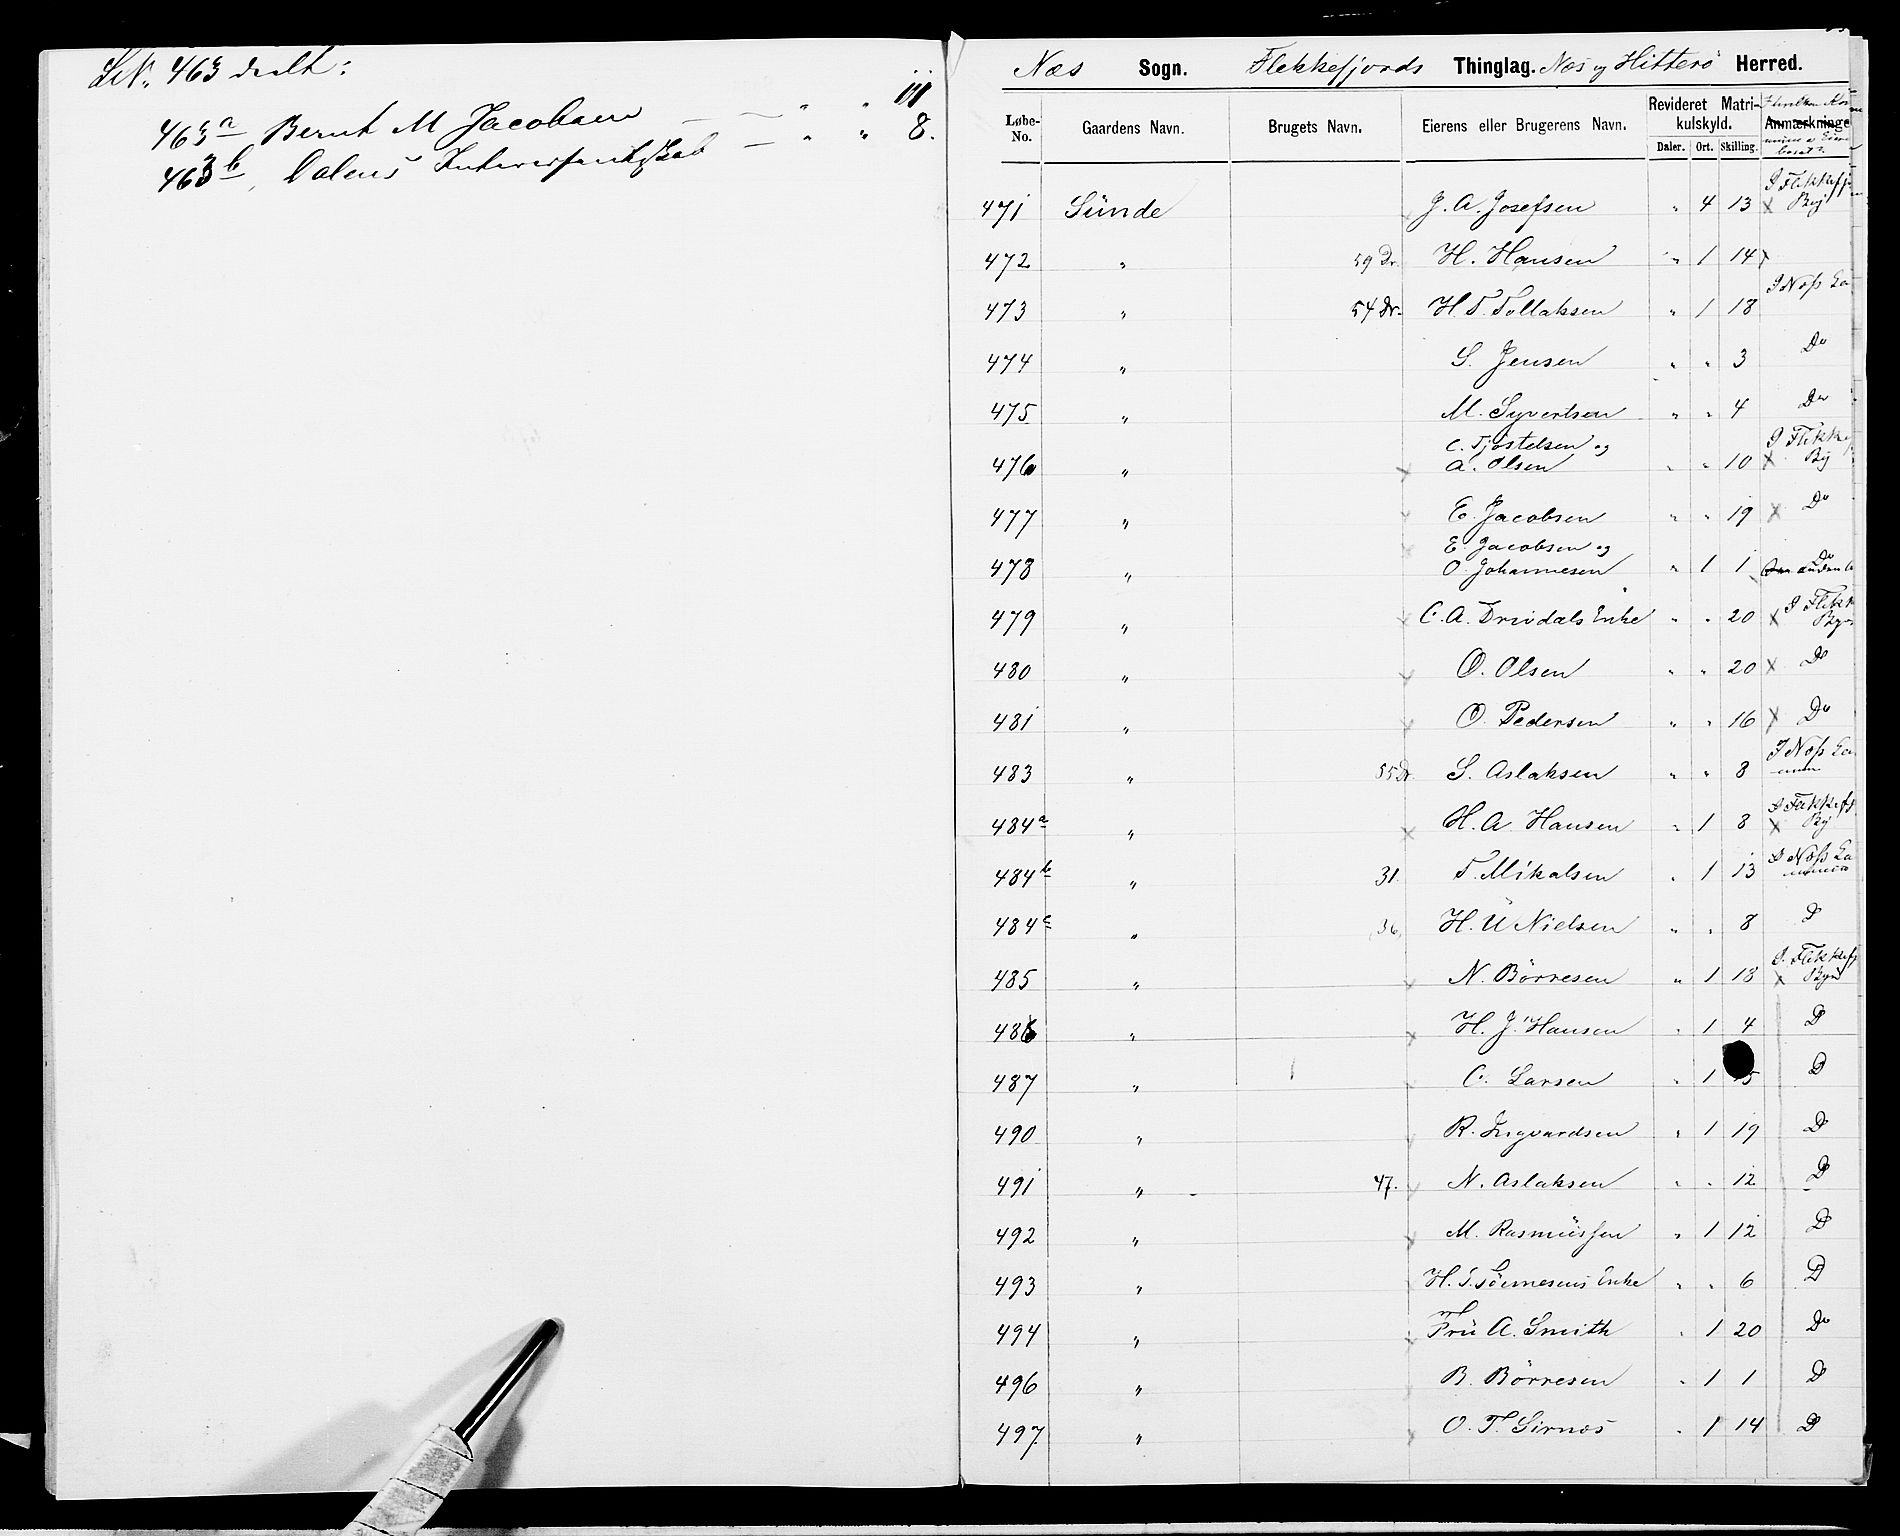 LNo. 463 deelt:
463a Bernt M Jacobsen — " " 11
463b Calens Interessentskab — " " 8.
Næs Sogn. Flekkefjords Thinglag. Næs og Hitterö Herred.
Løbe-No. Gaardens Navn. Brugets Navn. Eierens eller Brugerens Navn. Revideret Matrikulskyld. Anmærkninge
Daler. Ort. Skilling.
471 Sünde J. A. Josefsen " 4 13 I Flekkefj
x By
472 " 59 Dr. H. Hansen " 1 14 x
473 " 54 Dr. H. T. Tollaksen " 1 18 I Næss La
474 " S. Jensen " " 3 Do
475 " M. Syvertsen " " 4 Do
476 " C. Tjøstelsen og A. Olsen " " 10 I Flekkef
x By
477 " E. Jacobsen " " 19 x Do
478 " E. Jacobsen og O. Johannesen " 1 1 Do
479 " C. A. Drivdals Enke " " 20 I Flekk
x By
480 " O. Olsen " " 20 x Do
481 " O. Pedersen " " 16 x Do
483 " 55 Dr S. Aslaksen " " 8 I Næss La
484a " H. A. Hansen " 1 8 I Flekkefj
x By
484b " 31 T. Mikalsen " 1 13 I Næss La
484c " 36 H. U Nielsen " " 8 D
485 " N. Börresen " 1 18 I Flekkefj
x By
486 " H. J. Hansen " 1 4 D
487 " C. Larsen " 1 15 D
490 " R. Ingvardsen " 1 19 D
491 " 47. N. Aslaksen " " 12 D
492 " M. Rasmüssen " 1 12 D
493 " Enke " " 6 D
494 " Frü A. Smith " 1 20 Do
496 " B. Börresen " 1 1 D
497 " O. T. Sirnæs " 1 14 D